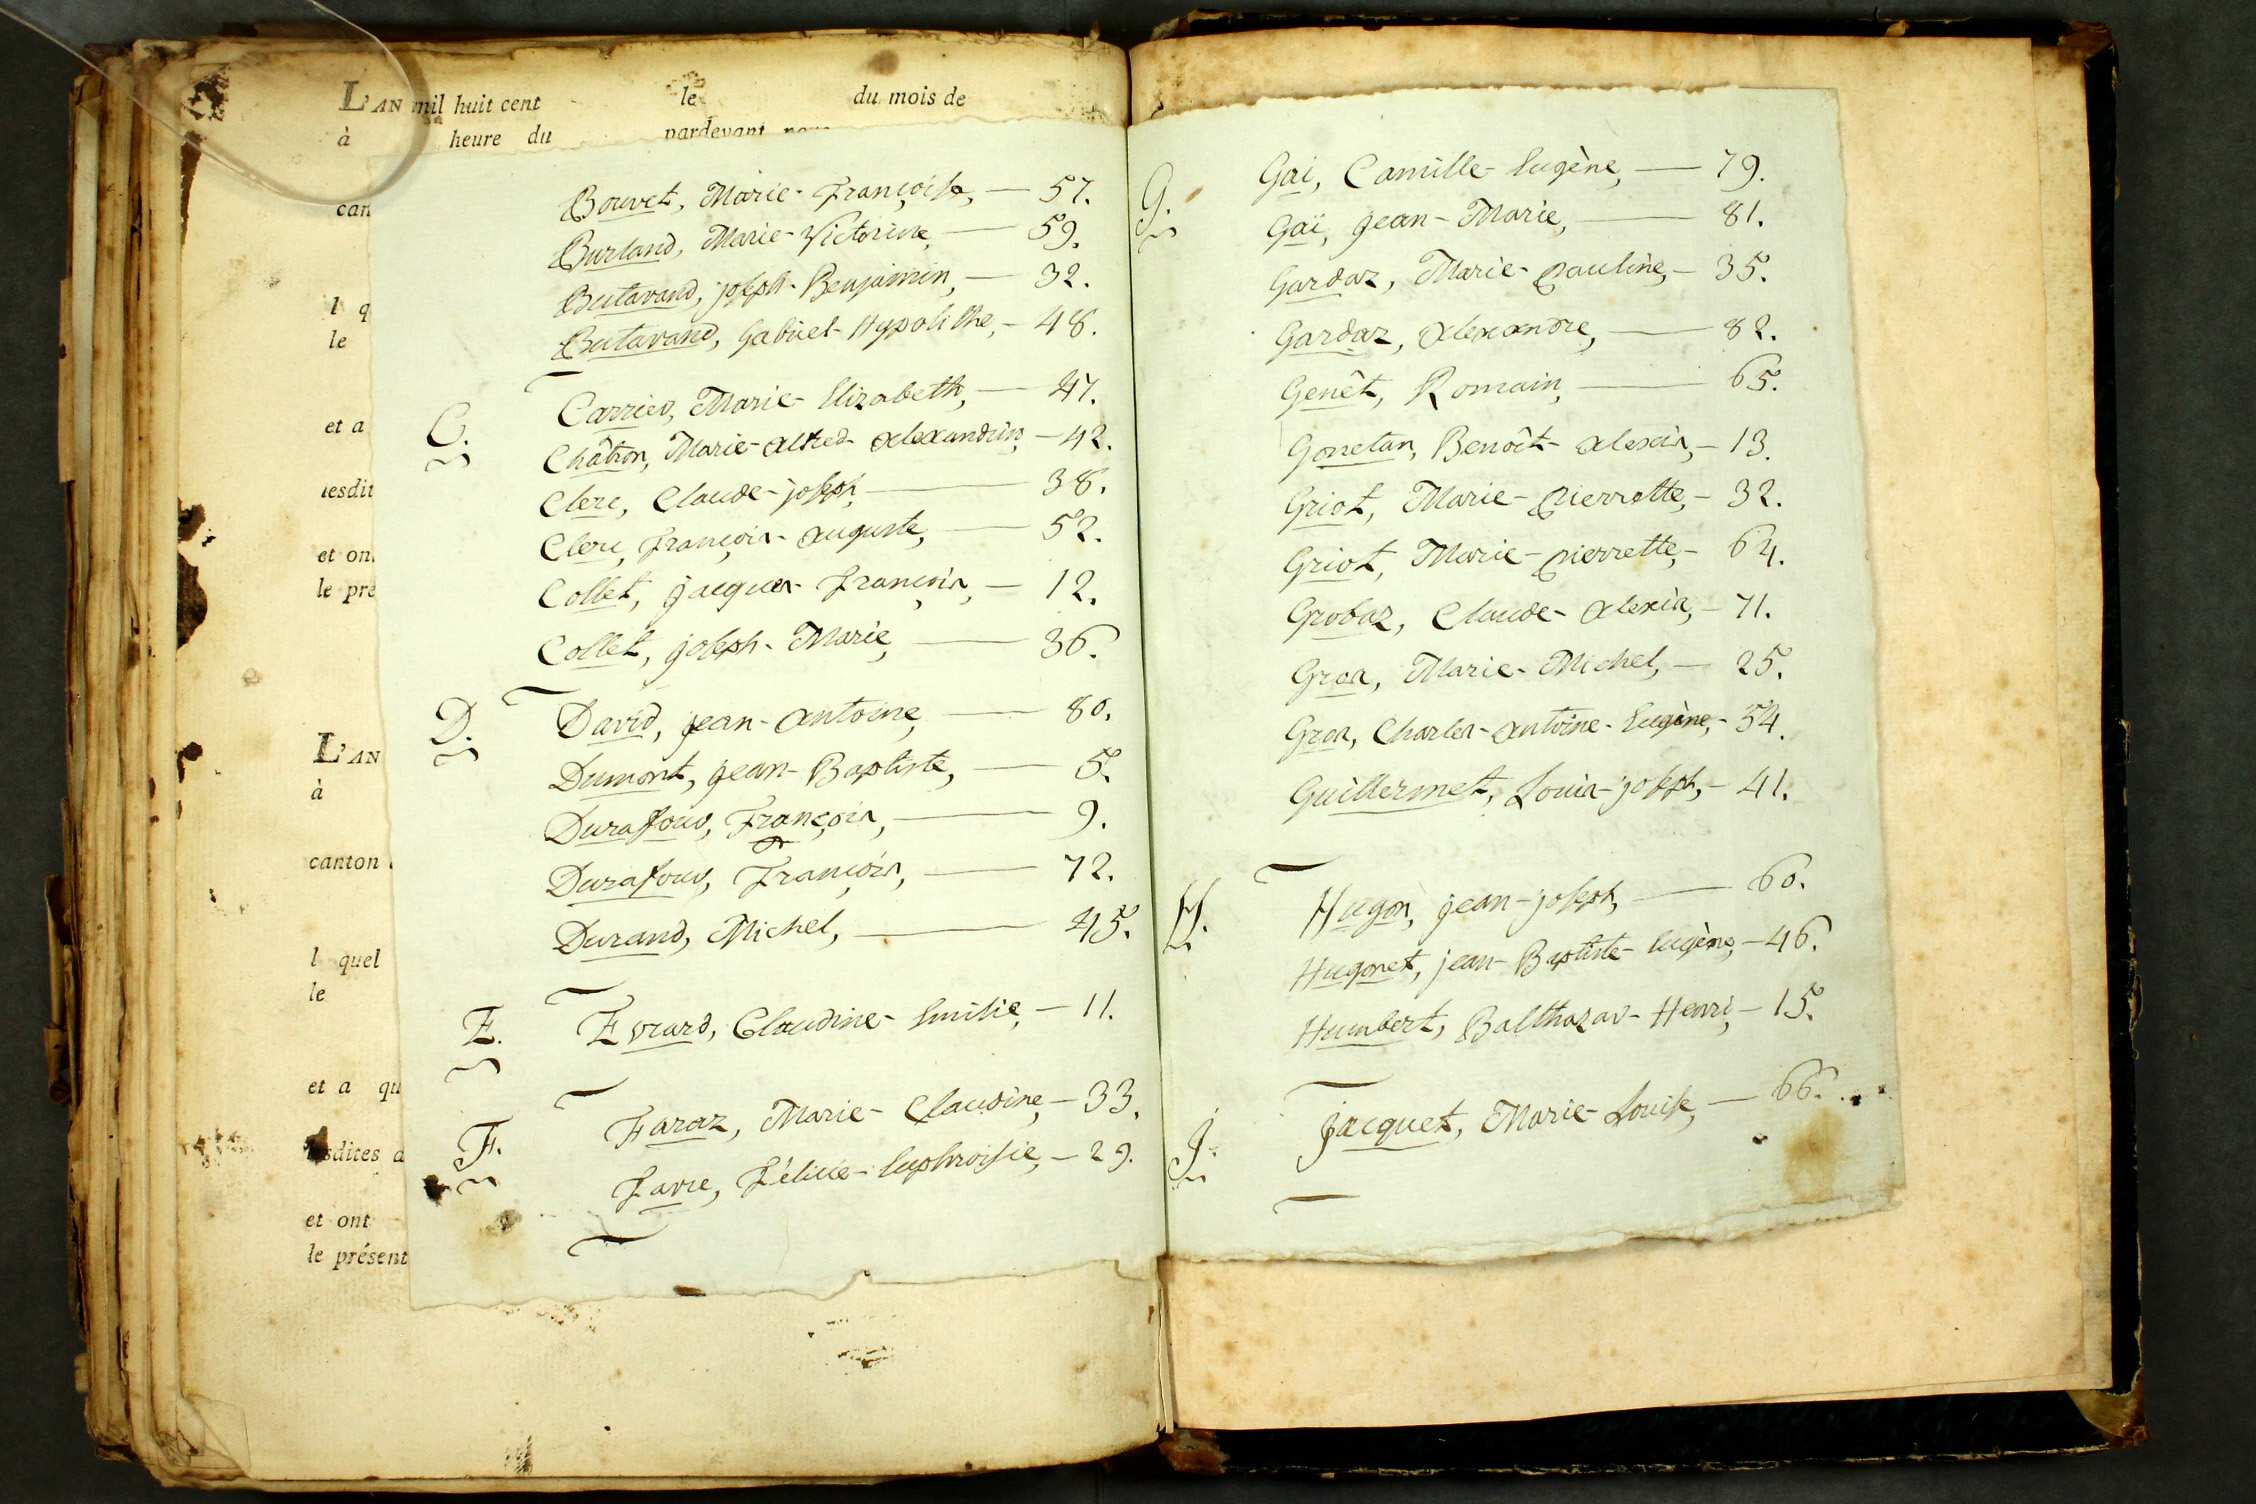 L'AN mil huit cent le du mois de
à heure du pardevant
can
Bouvet, Marie-Françoise, — 57.
Burland, Marie-Victorine, — 59.
Butavand, joseph-Benjamin, — 32.
l q
Butavand, Gabriel-Hypolithe, — 48.
le
C. Carrier, Marie-Elizabeth, — 47.
et a
Châtron, Marie-Alfred-Alexandrin, — 42.
Clerc, Claude-joseph, — 38.
lesdit
Clerc, François-Auguste, — 52.
et on
Collet, jacques-François, — 12.
le pré
Collet, joseph-Marie, — 36.
D. David, jean-Antoine, — 80.
L'AN
Dumont, jean-Baptiste, — 5.
à
Durafour, François, — 9.
canton
Durafour, François, — 72.
Durand, Michel, — 45.
l quel
le
E. Evrard, Claudine-Emilie, — 11.
et a qu
F. Faraz, Marie-Claudine, — 33.
lesdites a
Favre, Félicie-Euphroisie, — 29.
et ont
le présent
G. Gai, Camille-Eugène, — 79.
Gaï, jean-Marie, — 81.
Gardaz, Marie-Pauline, — 35.
Gardaz, Alexandre, — 82.
Genêt, Romain, — 65.
Gonetan, Benoît-Alexis, — 13.
Griot, Marie-Pierrette, — 32.
Griot, Marie-Pierrette, — 64.
Grobaz, Claude-Alexis, — 71.
Gros, Marie-Michel, — 25.
Gros, Charles-Antoine-Eugène, — 54.
Guillermet, Louis-joseph, — 41.
H. Hugon, jean-joseph, — 60.
Hugonet, jean-Baptiste-Eugène, — 46.
Humbert, Balthazar-Henri, — 15.
J. jacquet, Marie-Louise, — 66.